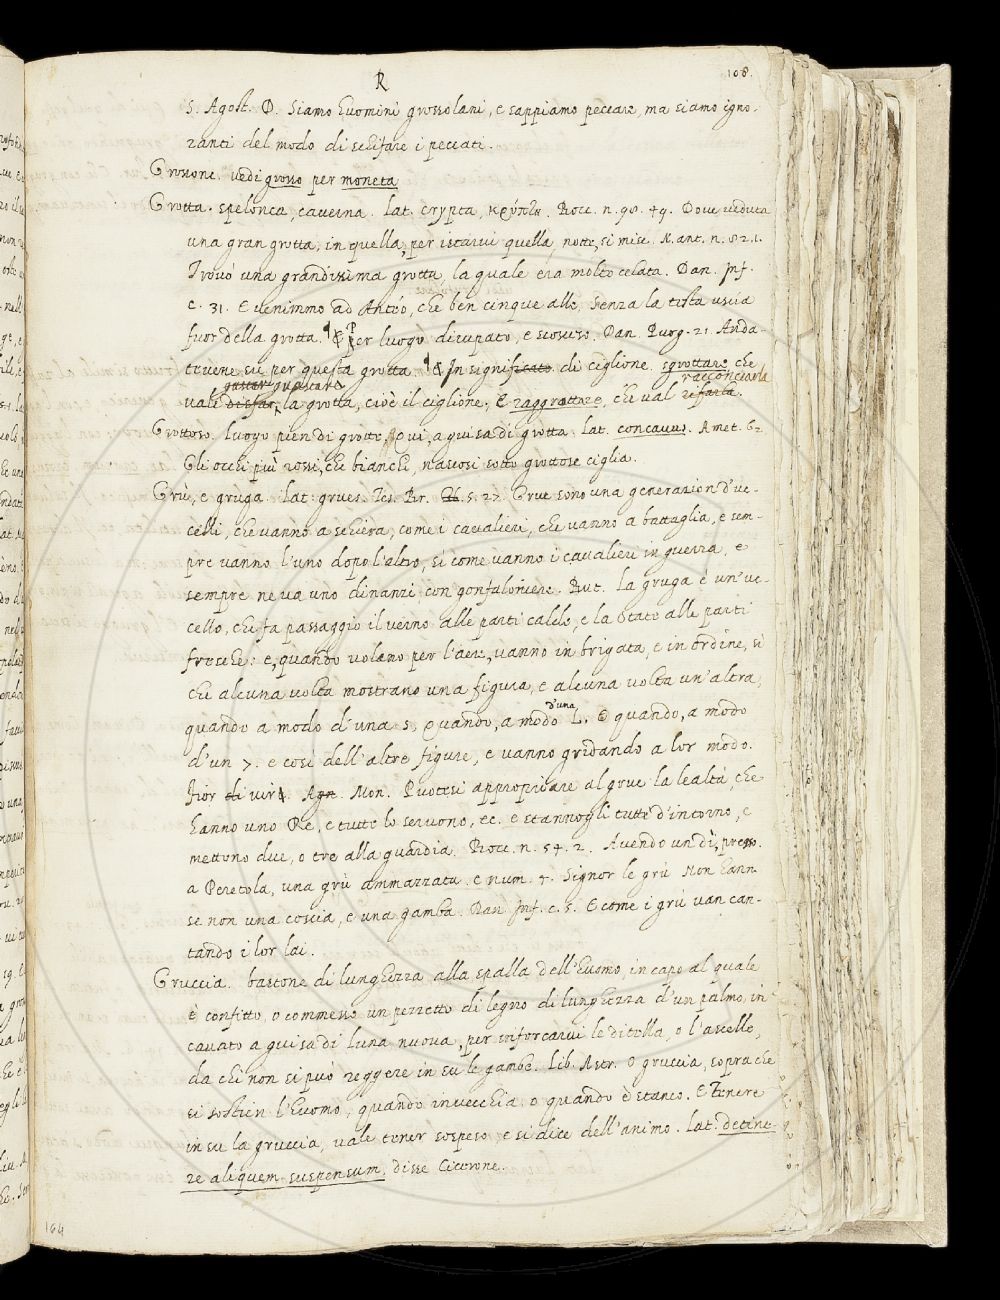 R
108.
S. Agost. D. Siamo huomini grossolani, e sappiamo peccare, ma siamo igno-
ranti del modo di schifare i peccati.
Grossone. vedi grosso per moneta
Grotta. spelonca, caverna. Lat. crypta, κρύπτη. Bocc. n. 98. 49. Dove veduta
una gran grotta, in quella, per istarvi quella notte, si mise. N. ant. n. 82. 1.
Trovò una grandissima grotta, la quale era molto celata. Dan. Inf.
c. 31. E venimmo ad Anteo, che ben cinque alle, senza la testa uscia
fuor della grotta. ¶ & Per luogo dirupato, e scosceso. Dan. Purg. 21. Anda-
tevene su per questa grotta. ¶ & In significato di ciglione. sgrottare che
guastare racconciarla
vale disfar, la grotta, cioè il ciglione. E raggrottare, che val rifarla.
Grottoso. luogo pien di grotte, Qui, a guisa di grotta. Lat. concavus. Amet. 62
Gli occhi più rossi, che bianchi, nascosi sotto grottose ciglia.
Grù, e gruga. Lat. grues. Tes. Br. 5. 27. Grue sono una generazion d'uc-
celli, che vanno a schiera, come i cavalieri, che vanno a battaglia, e sem-
pre vanno l'uno dopo l'altro, si come vanno i cavalieri in guerra, e
sempre ne va uno dinanzi con gonfaloniere. But. La gruga è un'uc-
cello, che fa passaggio il verno alle parti calde, e la state alle parti
fredde: e, quando volano per l'aere, vanno in brigata, e in ordine, sì
che alcuna volta mostrano una figura, e alcuna volta un'altra,
d'una
quando a modo d'una s, e quando, a modo L. E quando, a modo
d'un 7. e così dell'altre figure, e vanno gridando a lor modo.
Fior di virt. Agn. Mon. Puotesi appropriare al grue la lealtà, che
hanno uno Re, e tutte lo servono, ec. e stannogli tutte d'intorno, e
mettono due, o tre alla guardia. Bocc. n. 54. 2. Avendo un dì, presso.
a Peretola, una grù ammazzata. e num. 7. Signor le grù non hann
se non una coscia, e una gamba. Dan. Inf. c. 5. E come i grù van can-
tando i lor lai.
Gruccia. bastone di lunghezza alla spalla dell'huomo, in capo al quale
è confitto, o commesso un pezzetto di legno di lunghezza d'un palmo, in
cavato a guisa di luna nuova, per inforcarvi le ditella, o l'ascelle,
da chi non si può reggere in su le gambe. Lib. Astr. O gruccia, sopra che
si sostien l'huomo, quando invecchia o quando è stanco. E Tenere
in su la gruccia, vale tener sospeso, e si dice dell'animo. Lat. detine-
re aliquem suspensum, disse Cicerone.
164